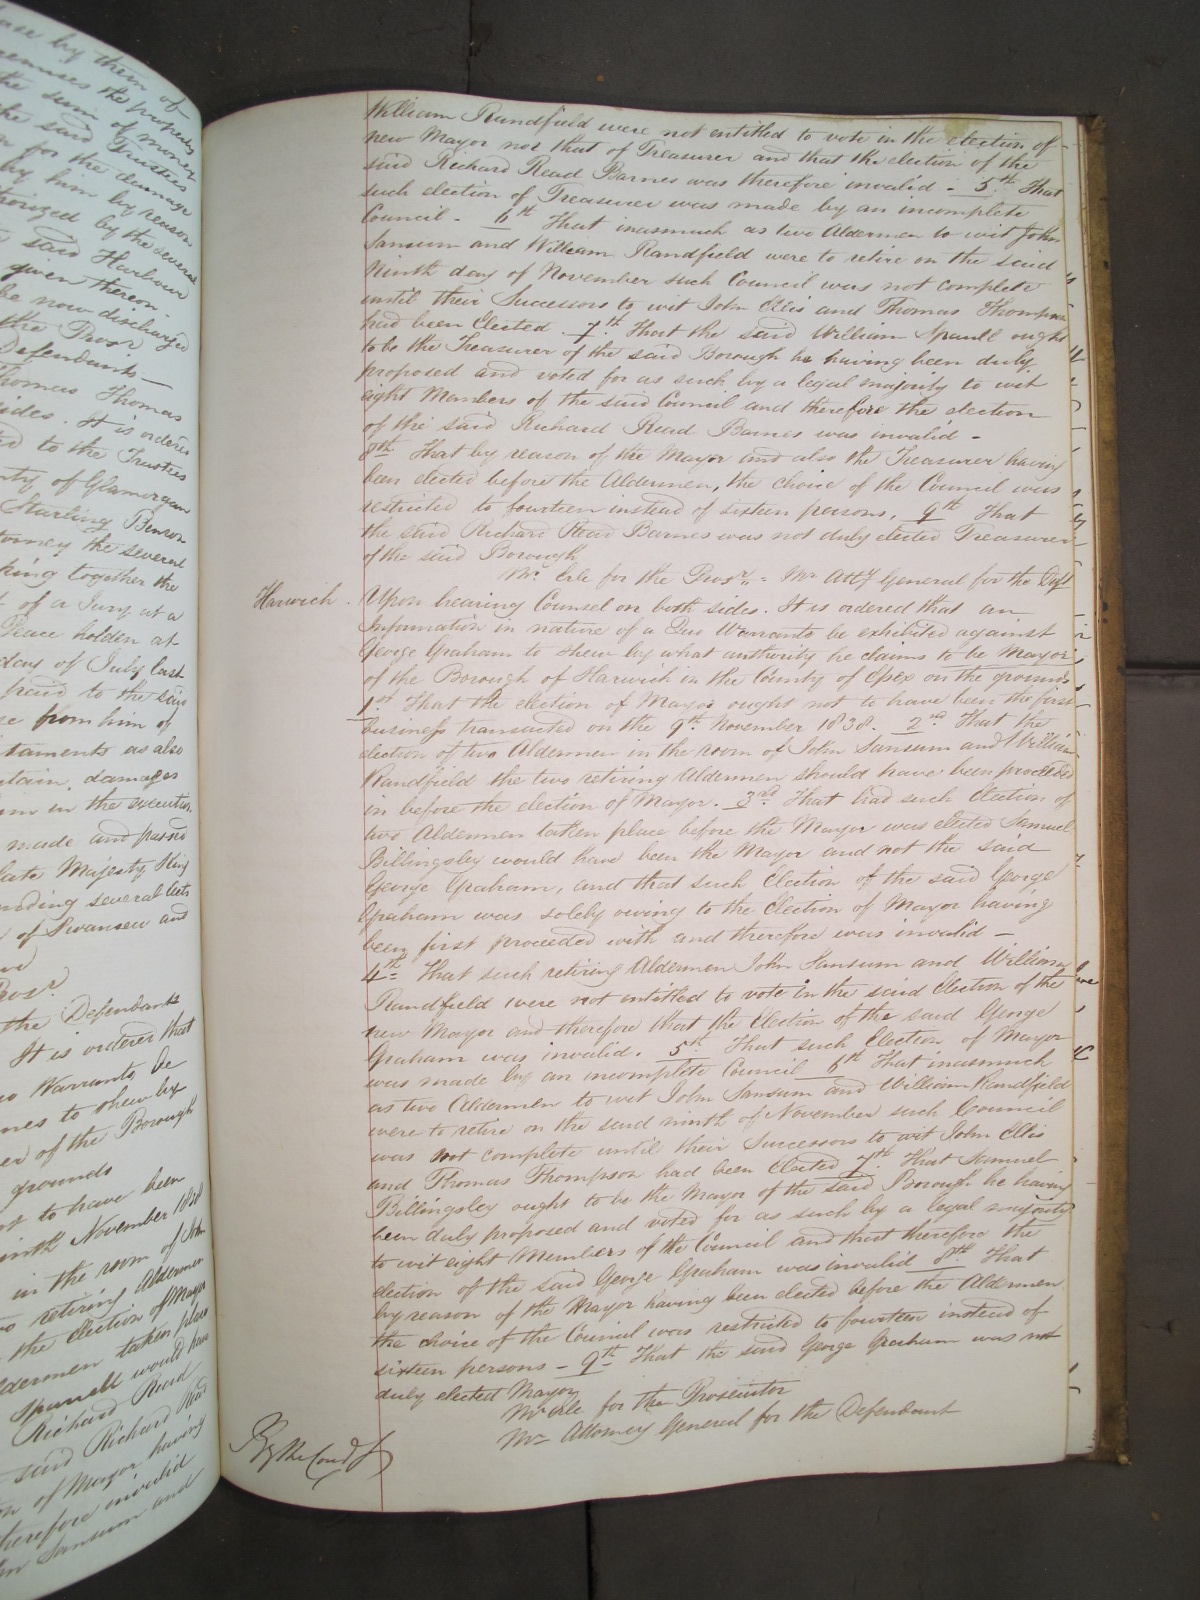 ease by them of
the property
the sum of money
the said Trustees
n for the damage
by him by reason
thorized by the several
said Harbour
given thereon
be now discharged
the Prosr
Defendants
Thomas Thomas
sides. It is ordered
to the Trustees
nty of Glamorgan
Starling Benson
torney the several
king together the
of a Jury at a
Peace holden at
day of July last
paid to the said
se from him of
taments as also
tain damages
um in the execution
made and passed
late Majesty King
ending several Acts
of Swansea and
Prosr.
the Defendants
It is ordered that
Warranto be
mes to shew by
er of the Borough
grounds
not to have been
ninth November 1838
in the room of John
retiring Aldermen
the election of Mayor
ldermen taken place
Spurall would have
Richard Read
said Richard Read
on of Mayor having
therefore invalid
Sansum and
William Randfield were not entitled to vote in the election of
new Mayor nor that of Treasurer and that the election of the
said Richard Read Barnes was therefore invalid - 5th That
such election of Treasurer was made by an incomplete
Council - 6th That inasmuch as two Aldermen to wit John
Sansum and William Randfield were to retire on the said
Ninth day of November such Council was not complete
until their Successors to wit John Ellis and Thomas Thompson
had been Elected. 7th That the said William Spurall ought
to be the Treasurer of the said Borough he having been duly
proposed and voted for as such by a legal majority to wit
eight Members of the said Council and therefore the election
of the said Richard Read Barnes was invalid -
8th That by reason of the Mayor and also the Treasurer having
been elected before the Aldermen, the choice of the Council was
restricted to fourteen instead of sixteen persons. 9th That
the said Richard Read Barnes was not duly elected Treasurer
of the said Borough
Mr. Erle for the Prosr. = Mr Atty General for the Deft
Harwich. Upon hearing Counsel on both sides. It is ordered that an
Information in nature of a Quo Warranto be exhibited against
George Graham to shew by what authority he claims to be Mayor
of the Borough of Harwich in the County of Essex on the grounds
1st That the election of Mayor ought not to have been the first
business transacted on the 9th November 1838. 2nd That the
election of two Aldermen in the room of John Sansum and William
Randfield the two retiring Aldermen should have been proceeded
in before the election of Mayor. 3rd That had such Election of
two Aldermen taken place before the Mayor was elected Samuel
Billingsley would have been the Mayor and not the said
George Graham, and that such Election of the said George
Graham was solely owing to the Election of Mayor having
been first proceeded with and therefore was invalid -
4th That such retiring Aldermen John Sansum and William
Randfield were not entitled to vote in the said Election of the
new Mayor and therefore that the Election of the said George
Graham was invalid. 5th That such Election of Mayor
was made by an incomplete Council 6th That inasmuch
as two Aldermen to wit John Sansum and William Randfield
were to retire on the said ninth of November such Council
was not complete until their Successors to wit John Ellis
and Thomas Thompson had been Elected 7th That Samuel
Billingsley ought to be the Mayor of the said Borough he having
been duly proposed and voted for as such by a legal majority
to wit eight Members of the Council and that therefore the
election of the said George Graham was invalid 8th That
by reason of the Mayor having been elected before the Aldermen
the choice of the Council was restricted to fourteen instead of
sixteen persons - 9th That the said George Graham was not
duly elected Mayor
Mr Erle for the Prosecutor
Mr Attorney General for the Defendant
By the Court